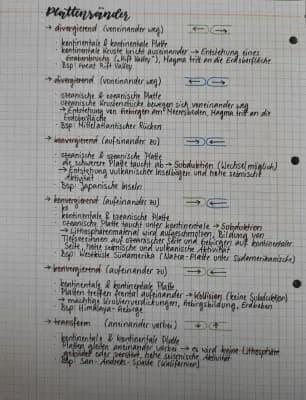 Plattenränder
→ divergierend (voneinander weg)
· kontinentale & kontinentale Platte
· kontinentale Kruste bricht auseinander → Entstehung eines
Grabenbruchs ("Rift Valley"), Magma tritt an die Erdoberfläche
· Bsp: Great Rift Valley
→ divergierend (voneinander weg)
· ozeanische & ozeanische Platte
· ozeanische Krustenstücke bewegen sich voneinander weg
→ Entstehung von Gebirgen am Meeresboden, Magma tritt an die
Erdoberfläche
· Bsp: Mittelatlantischer Rücken
→ konvergierend (aufeinander zu)
· ozeanische & ozeanische Platte
· die schwerere Platte taucht ab → Subduktion (Wechsel möglich)
→ Entstehung vulkanischer Inselbögen und hohe seismische
Aktivität
· Bsp: Japanische Inseln
→ konvergierend (aufeinander zu)
· kontinentale & ozeanische Platte
· ozeanische Platte taucht unter kontinentale → Subduktion
→ Lithosphärenmaterial wird aufgeschmolzen, Bildung von
Tiefseerinnen auf ozeanischer Seite und Gebirgen auf kontinentaler
Seite, hohe seismische und vulkanische Aktivität
· Bsp: Westküste Südamerika (Nazca-Platte unter Südamerikanische)
→ konvergierend (aufeinander zu)
· kontinentale & kontinentale Platte
· Platten treffen frontal aufeinander → Kollision (keine Subduktion)
→ mächtige Krustenverdickungen, Gebirgsbildung, Erdbeben
· Bsp: Himalaya-Gebirge
→ transform (aneinander vorbei)
· kontinentale & kontinentale Platte
· Platten gleiten aneinander vorbei → es wird keine Lithosphäre
gebildet oder zerstört, hohe seismische Aktivität
· Bsp: San-Andreas-Spalte (Kalifornien)